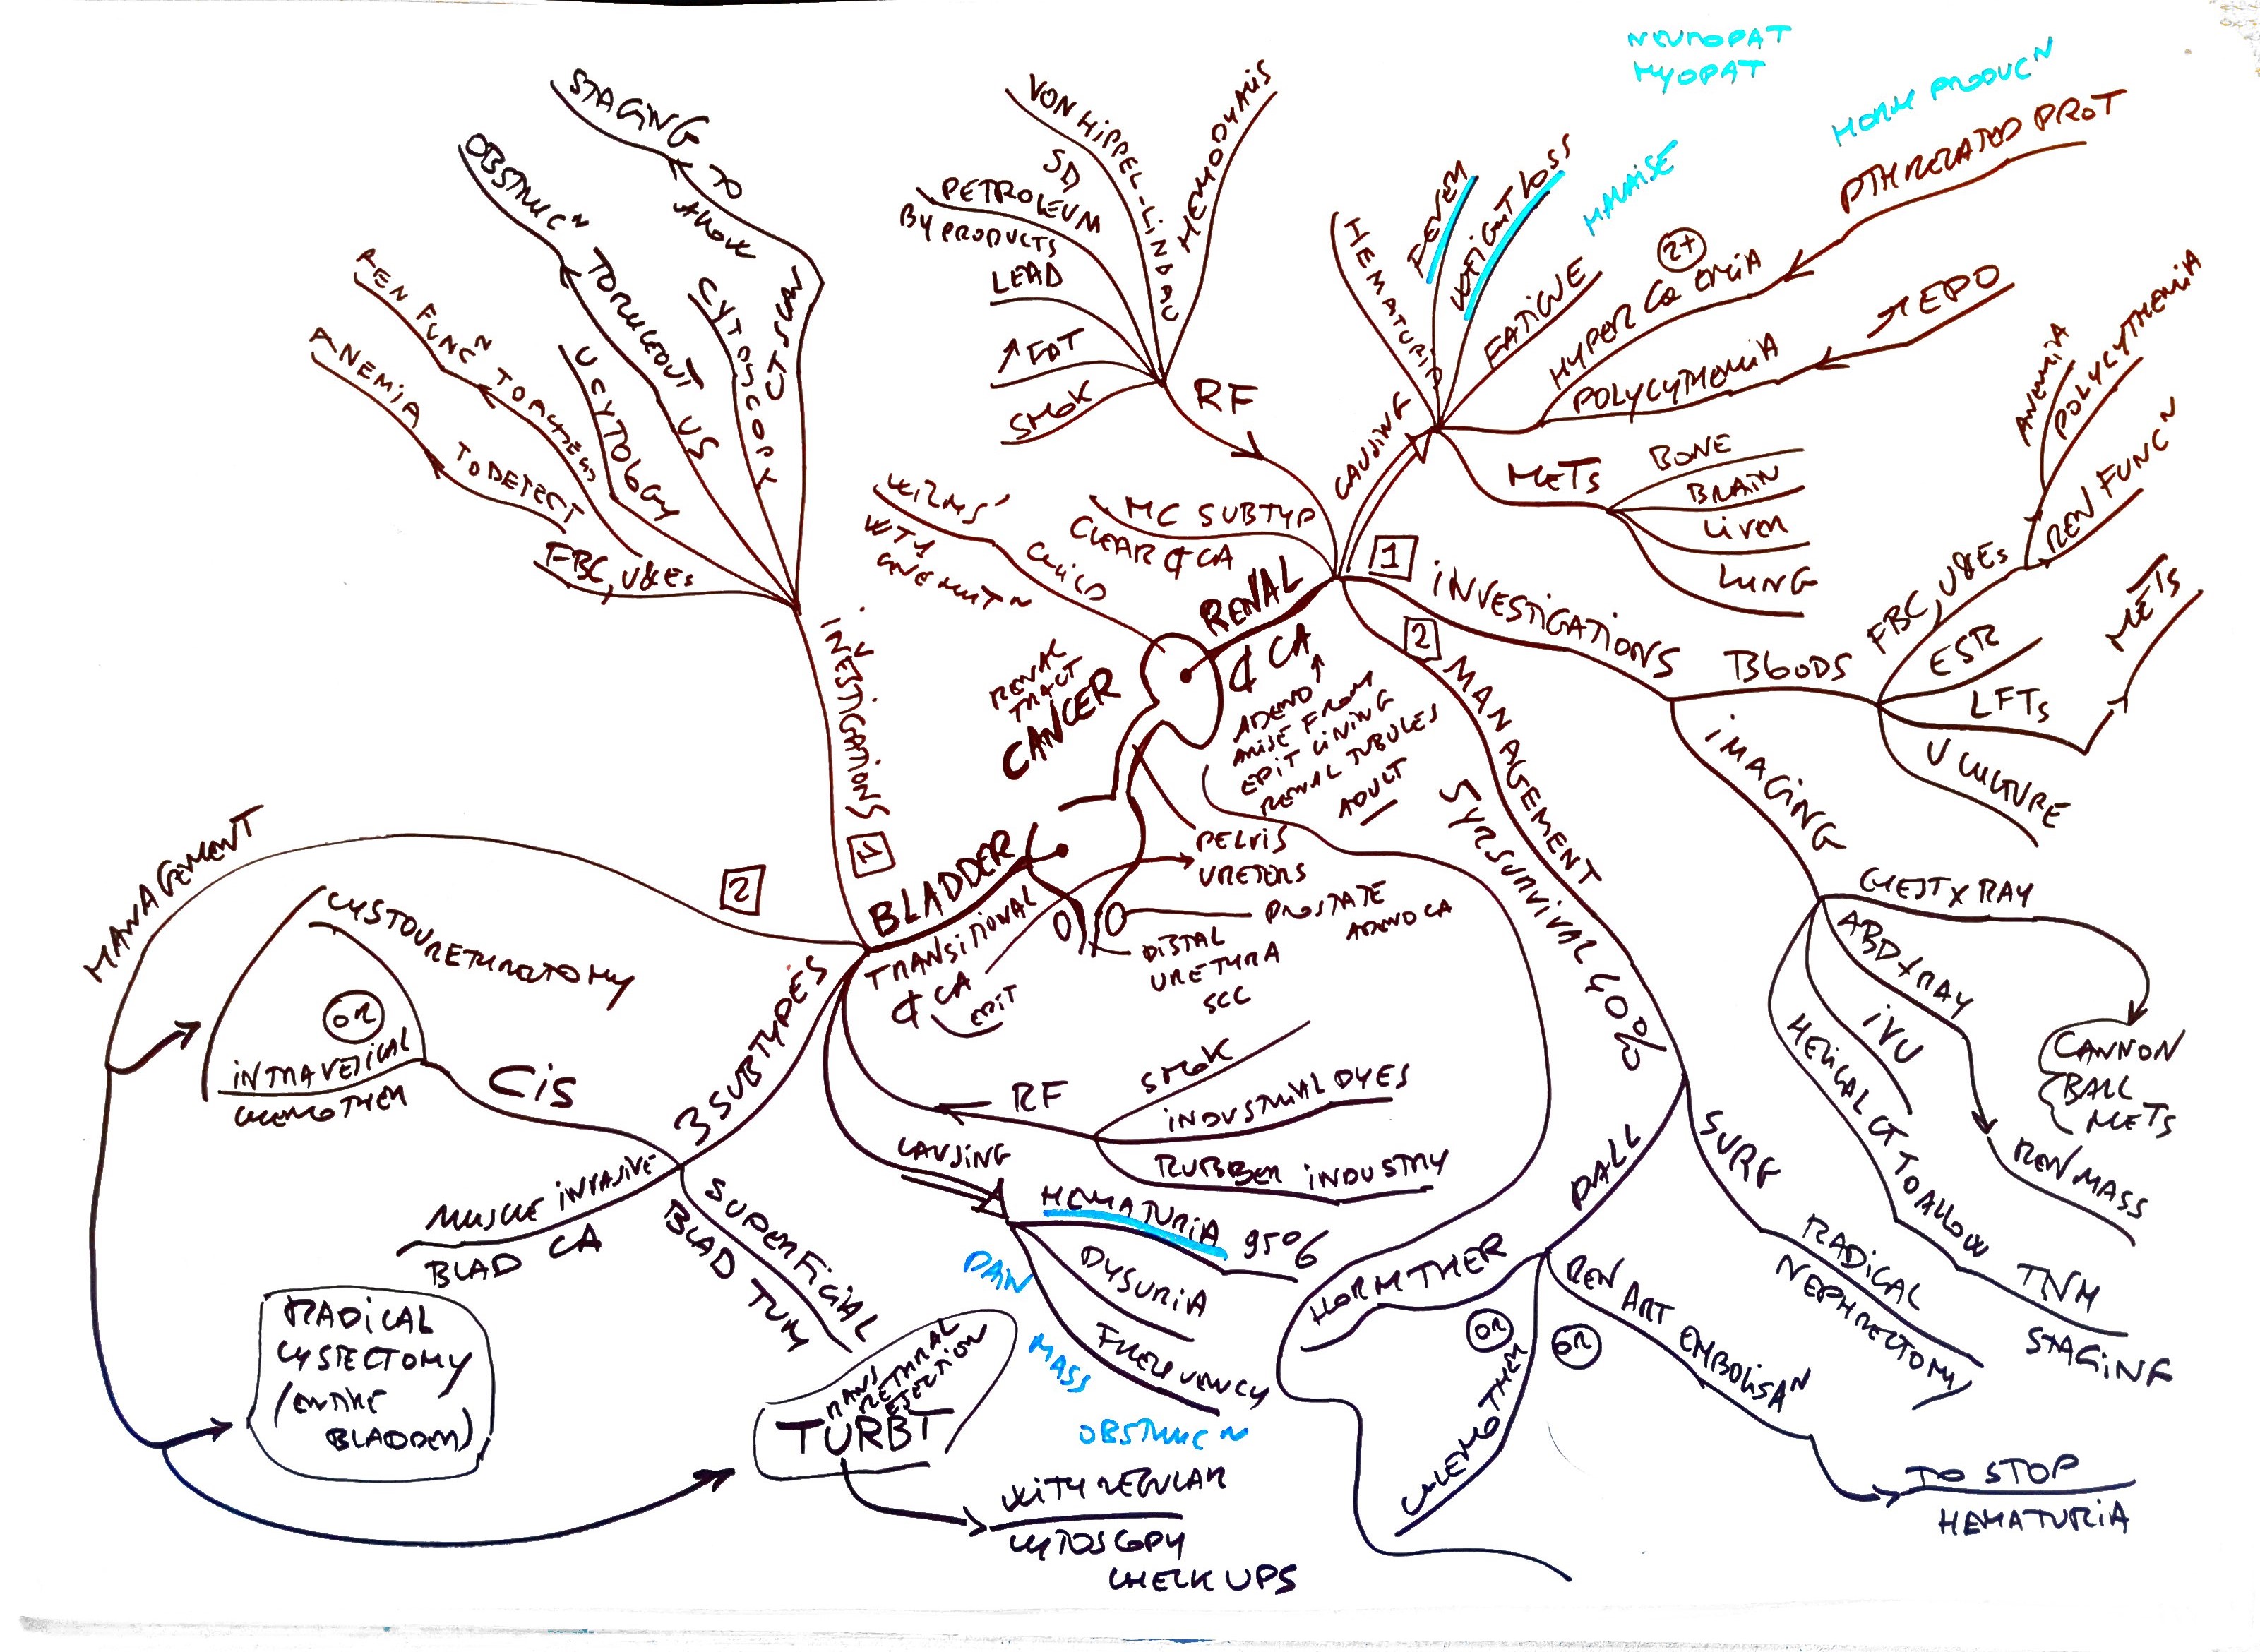 RENAL
TRACT
CANCER
RENAL
¢ CA
ADENO
ARISE FROM
EPIT LINING
RENAL TUBULES
ADULT
CHILD
WILMS'
WT1
GNE MUTN
MC SUBTYP
CLEAR ¢ CA
RF
SMOK
↑ FAT
LEAD
PETROLEUM
BY PRODUCTS
VON HIPPEL-LINDAU
SD
HEMODYALIS
CAUSING
HEMATURIA
FEVER
WEIGHT LOSS
MALAISE
NEUROPAT
MYOPAT
FATIGUE
HYPER Ca EMIA
2+
PTH RELATED PROT
HORM PRODUCN
POLYCYTHEMIA
↑ EPO
METS
BONE
BRAIN
LIVER
LUNG
1
INVESTIGATIONS
BLOODS
FBC, U&Es
ANEMIA
POLYCYTHEMIA
REN FUNCN
ESR
LFTS
METS
U CULTURE
IMAGING
CHEST X RAY
CANNON
BALL
METS
ABD X RAY
REN MASS
IVU
HELICAL CT TO ALLOW
TNM
STAGING
2
MANAGEMENT
5 YR SURVIVAL 40%
SURG
RADICAL
NEPHRECTOMY
PALL
HORM THER
OR
CHEMO THER
OR
REN ART EMBOLISAN
TO STOP
HEMATURIA
PELVIS
URETERS
PROSTATE
ADENO CA
DISTAL
URETHRA
SCC
BLADDER
TRANSITIONAL
¢ CA
EPIT
1
INVESTIGATIONS
FBC, U&Es
TO DETECT
ANEMIA
TO ASSESS
REN FUNCN
U CYTOLOGY
US
TO RULE OUT
OBSTRUCN
CYTOSCOPY
CT SCAN
TO
ALLOW
STAGING
2
MANAGEMENT
3 SUBTYPES
CIS
CYSTOURETHRECTOMY
OR
INTRAVESICAL
CHEMO THER
MUSCLE INVASIVE
BLAD CA
RADICAL
CYSTECTOMY
(ENTIRE
BLADDER)
SUPERFICIAL
BLAD TUM
TRANS
URETHRAL
RESECTION
TURBT
WITH REGULAR
CYTOSCOPY
CHECK UPS
RF
SMOK
INDUSTRIAL DYES
RUBBER INDUSTRY
CAUSING
HEMATURIA 95%
DYSURIA
FREQUENCY
PAIN
MASS
OBSTRUCN